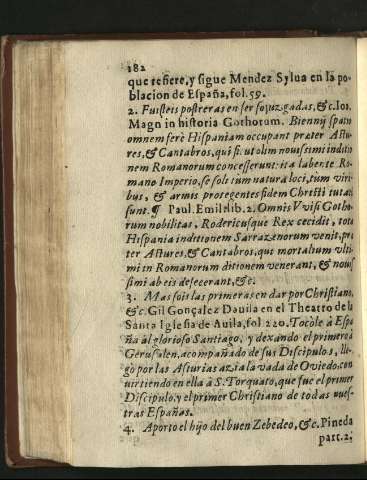 182
que refiere, y sigue Mendez Sylua en la po-
blacion de España, fol. 59.
2. Fuisteis postreras en ser sojuzgadas, &c. Ioā.
Magn in historia Gothorum. Biennij spatio
omnem ferè Hispaniam occupant præter Astu-
res, & Cantabros, qui si. ut olim nouissimi inditio
nem Romanorum concesserunt: ita labente Ro-
mano Imperio, se soli tùm natura loci, tùm viri-
bus, & armis protegentes fidem Christi tutati
sunt. ¶ Paul. Emil. lib. 2. Omnis Vvisi Gotho
rum nobilitas, Rodericusque Rex cecidit, tota
Hispania inditionem Sarrazenorum venit, præ
ter Astures, & Cantabros, qui mortalium vlti
mi in Romanorum ditionem venerant, & nouis
simi ab eis defecerant, &c.
3. Mas sois las primeras en dar por Christiano,
&c. Gil Gonçalez Dauila en el Theatro de la
Santa Iglesia de Auila, fol 220. Tocòle à Espa
ña al glorioso Santiago, y dexando el primero à
Gerusalen, acompañado de sus Discipulos, lle-
gò por las Asturias azia la vada de Oviedo, con
uirtiendo en ella à S. Torquato, que fue el primer
Discipulo, y el primer Christiano de todas vues-
tras Españas.
4. Aporto el hijo del buen Zebedeo, &c. Pineda
part. 2.